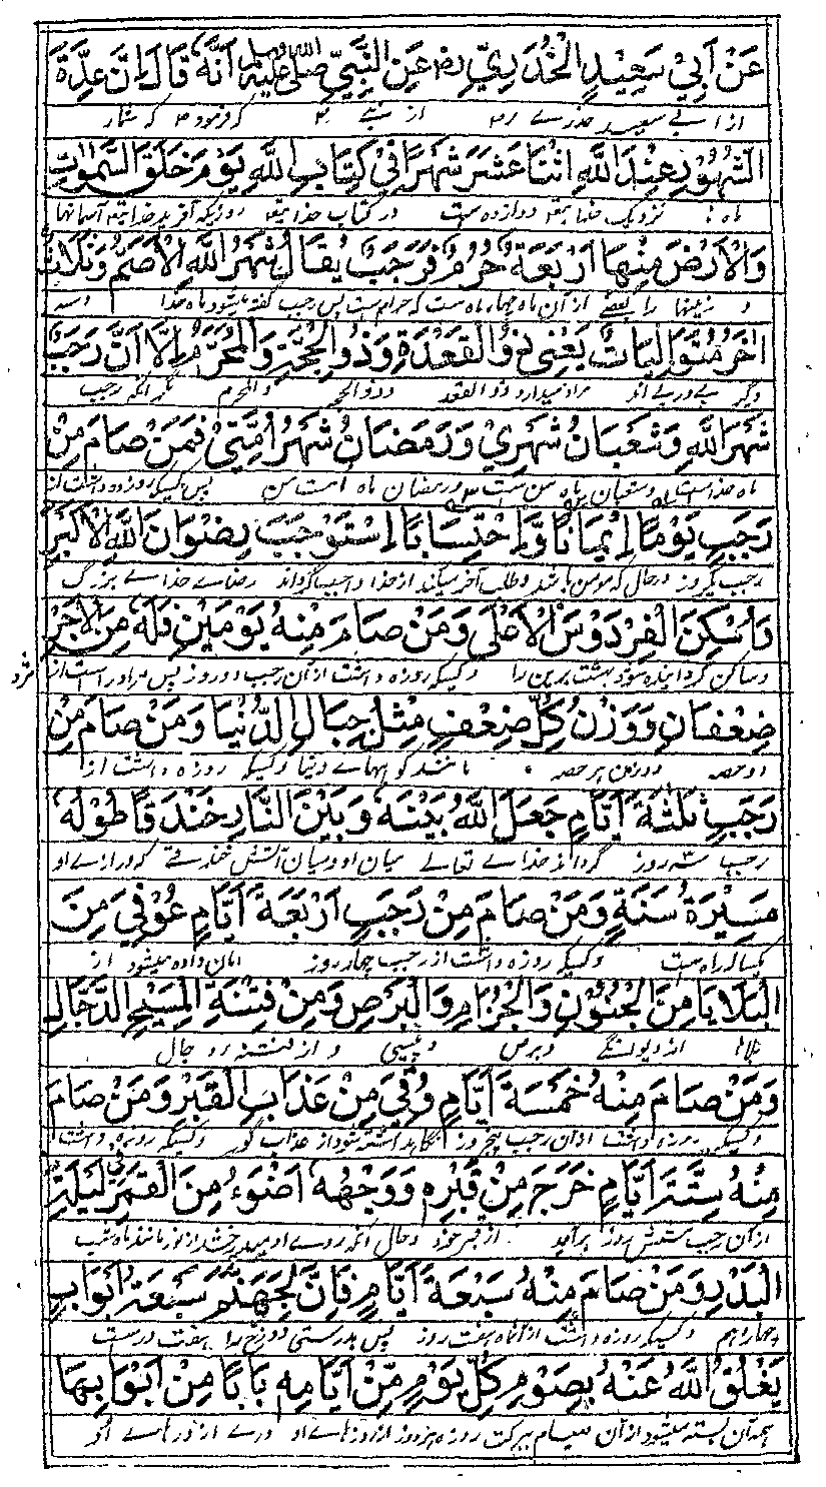 عَنْ اَبِيْ سَعِيْدٍ الْخُدْرِيِّ رض عَنِ النَّبِيِّ صلى الله عليه وسلم اَنَّهٗ قَالَ اِنَّ عِدَّةَ
از ابی سعید خدری رض از نبی ص که فرمود ص که شمار
الشُّهُوْرِ عِنْدَ اللّٰهِ اثْنَا عَشَرَ شَهْرًا فِيْ كِتَابِ اللّٰهِ يَوْمَ خَلَقَ السَّمٰوٰتِ
ماه ها نزدیک خدایتعالی دوازده است در کتاب خدایتعالی روزیکه آفرید خدایتعالی آسمانها
وَالْاَرْضَ مِنْهَا اَرْبَعَةٌ حُرُمٌ فَرَجَبٌ يُقَالُ شَهْرُ اللّٰهِ الْاَصَمُّ وَثَلَاثٌ
و زمینها را بعضی از آن ماه چهار ماه است که حرام است پس رجب گفته میشود ماه خدا و سه
اُخَرُ مُتَوَالِيَاتٌ يَعْنِيْ ذُو الْقَعْدَةِ وَذُو الْحِجَّةِ وَالْمُحَرَّمُ اِلَّا اَنَّ رَجَبَ
دیگر پے در پے اند مراد میدارد ذو القعد و ذو الحج و المحرم مگر آنکه رجب
شَهْرُ اللّٰهِ وَشَعْبَانُ شَهْرِيْ وَرَمَضَانُ شَهْرُ اُمَّتِيْ فَمَنْ صَامَ مِنْ
ماه خداست و شعبان ماه من است و رمضان ماه امت من پس کسیکه روزه داشت از
رَجَبٍ يَوْمًا اِيْمَانًا وَّاِحْتِسَابًا اِسْتَوْجَبَ رِضْوَانَ اللّٰهِ الْاَكْبَرَ
رجب یکروز در حال که مومن باشد و طلب اجر میکند از خدا واجب گرداند رضاے خداے بزرگ
وَاُسْكِنَ الْفِرْدَوْسَ الْاَعْلٰى وَمَنْ صَامَ مِنْهُ يَوْمَيْنِ فَلَهٗ مِنَ الْاَجْرِ
و ساکن گردانیده شود بهشت برین را و کسیکه روزه داشت از آن رجب دو روز پس مر او راست از مزد
ضِعْفَانِ وَوَزْنُ كُلِّ ضِعْفٍ مِثْلُ جِبَالِ الدُّنْيَا وَمَنْ صَامَ مِنْ
دو حصه و وزن هر حصه مانند کوهہاے دنیا و کسیکه روزه داشت از
رَجَبٍ ثَلٰثَةَ اَيَّامٍ جَعَلَ اللّٰهُ بَيْنَهٗ وَبَيْنَ النَّارِ خَنْدَقًا طُوْلُهٗ
رجب سه روز گرداند خداے تعالے میان او و میان آتش خندقے که درازی او
مَسِيْرَةُ سَنَةٍ وَمَنْ صَامَ مِنْ رَجَبٍ اَرْبَعَةَ اَيَّامٍ عُوْفِيَ مِنَ
یکساله راه است و کسیکه روزه داشت از رجب چهار روز امان داده میشود از
الْبَلَايَا مِنَ الْجُنُوْنِ وَالْجُذَامِ وَالْبَرَصِ وَمِنْ فِتْنَةِ الْمَسِيْحِ الدَّجَّالِ
بلاها از دیوانگی و برص و پیسی و از فتنه دجال
وَمَنْ صَامَ مِنْهُ خَمْسَةَ اَيَّامٍ وُقِيَ مِنْ عَذَابِ الْقَبْرِ وَمَنْ صَامَ
و کسیکه روزه داشت از آن رجب پنجروز نگاه داشته شود از عذاب گور و کسیکه روزه داشت
مِنْهُ سِتَّةَ اَيَّامٍ خَرَجَ مِنْ قَبْرِهٖ وَوَجْهُهٗ اَضْوَءُ مِنَ الْقَمَرِ فِيْ لَيْلَةِ
از آن رجب شش روز برآید از قبر خود و حال آنکه روے او میدرخشد از نور مانند ماه شب
الْبَدْرِ وَمَنْ صَامَ مِنْهُ سَبْعَةَ اَيَّامٍ فَاِنَّ لِجَهَنَّمَ سَبْعَةَ اَبْوَابٍ
چهاردهم و کسیکه روزه داشت از آن ماه هفت روز پس بدرستی دوزخ را هفت در است
يَغْلُقُ اللّٰهُ عَنْهُ بِصَوْمِ كُلِّ يَوْمٍ مِّنْ اَيَّامِهٖ بَابًا مِنْ اَبْوَابِهَا
بسته میشود از آن صیام ببرکت روزه هر روز از روزهاے او درے از درهاے